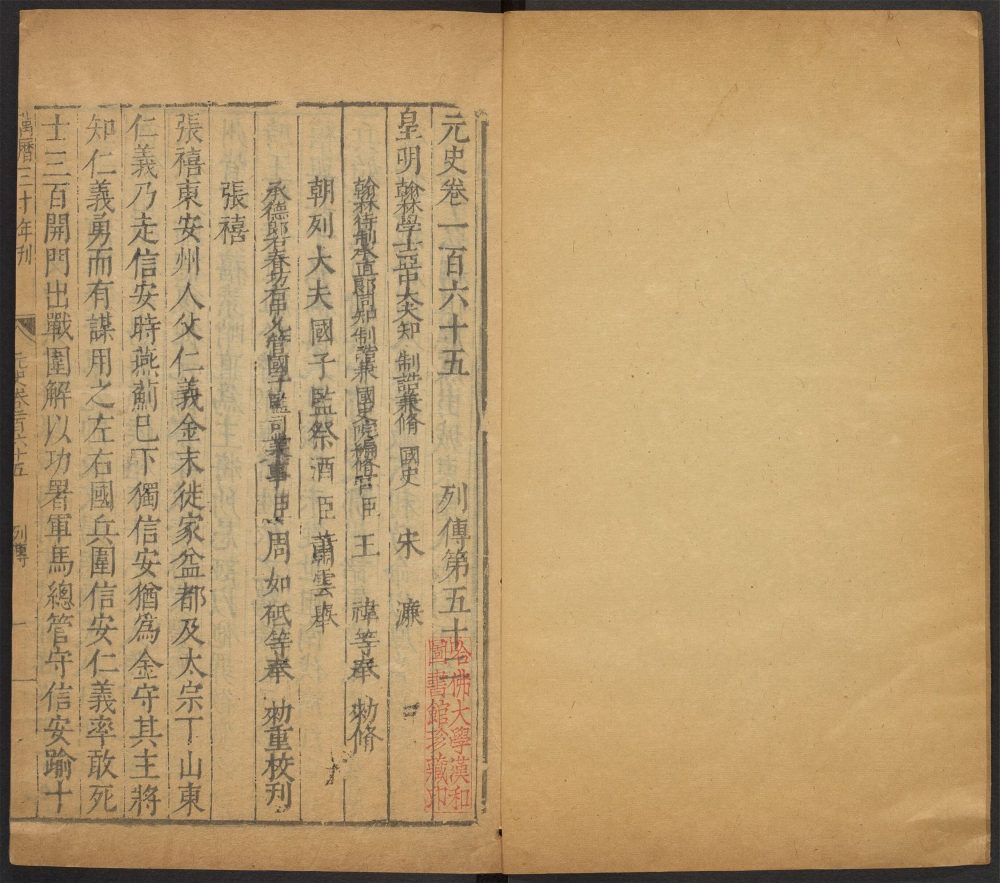 元史卷一百六十五 列傳第五十二
皇明翰林學士亞中大夫知 制誥兼脩 國史 宋 濂
翰林待制承直郎同知制誥兼國史院編脩官臣 王 禕等奉 勑脩
朝列大夫國子監祭酒臣蕭雲舉
承德郎右春坊右中允管國子監司業事臣周如砥等奉 勑重校刊
張禧
張禧東安州人父仁義金末徙家益都及太宗下山東
仁義乃走信安時燕薊已下獨信安猶爲金守其主將
知仁義勇而有謀用之左右國兵圍信安仁義率敢死
士三百開門出戰圍解以功署軍馬總管守信安踰十
萬曆三十年刊
元史卷一百六十五
列傳
一
哈佛大學漢和
圖書館珍藏印